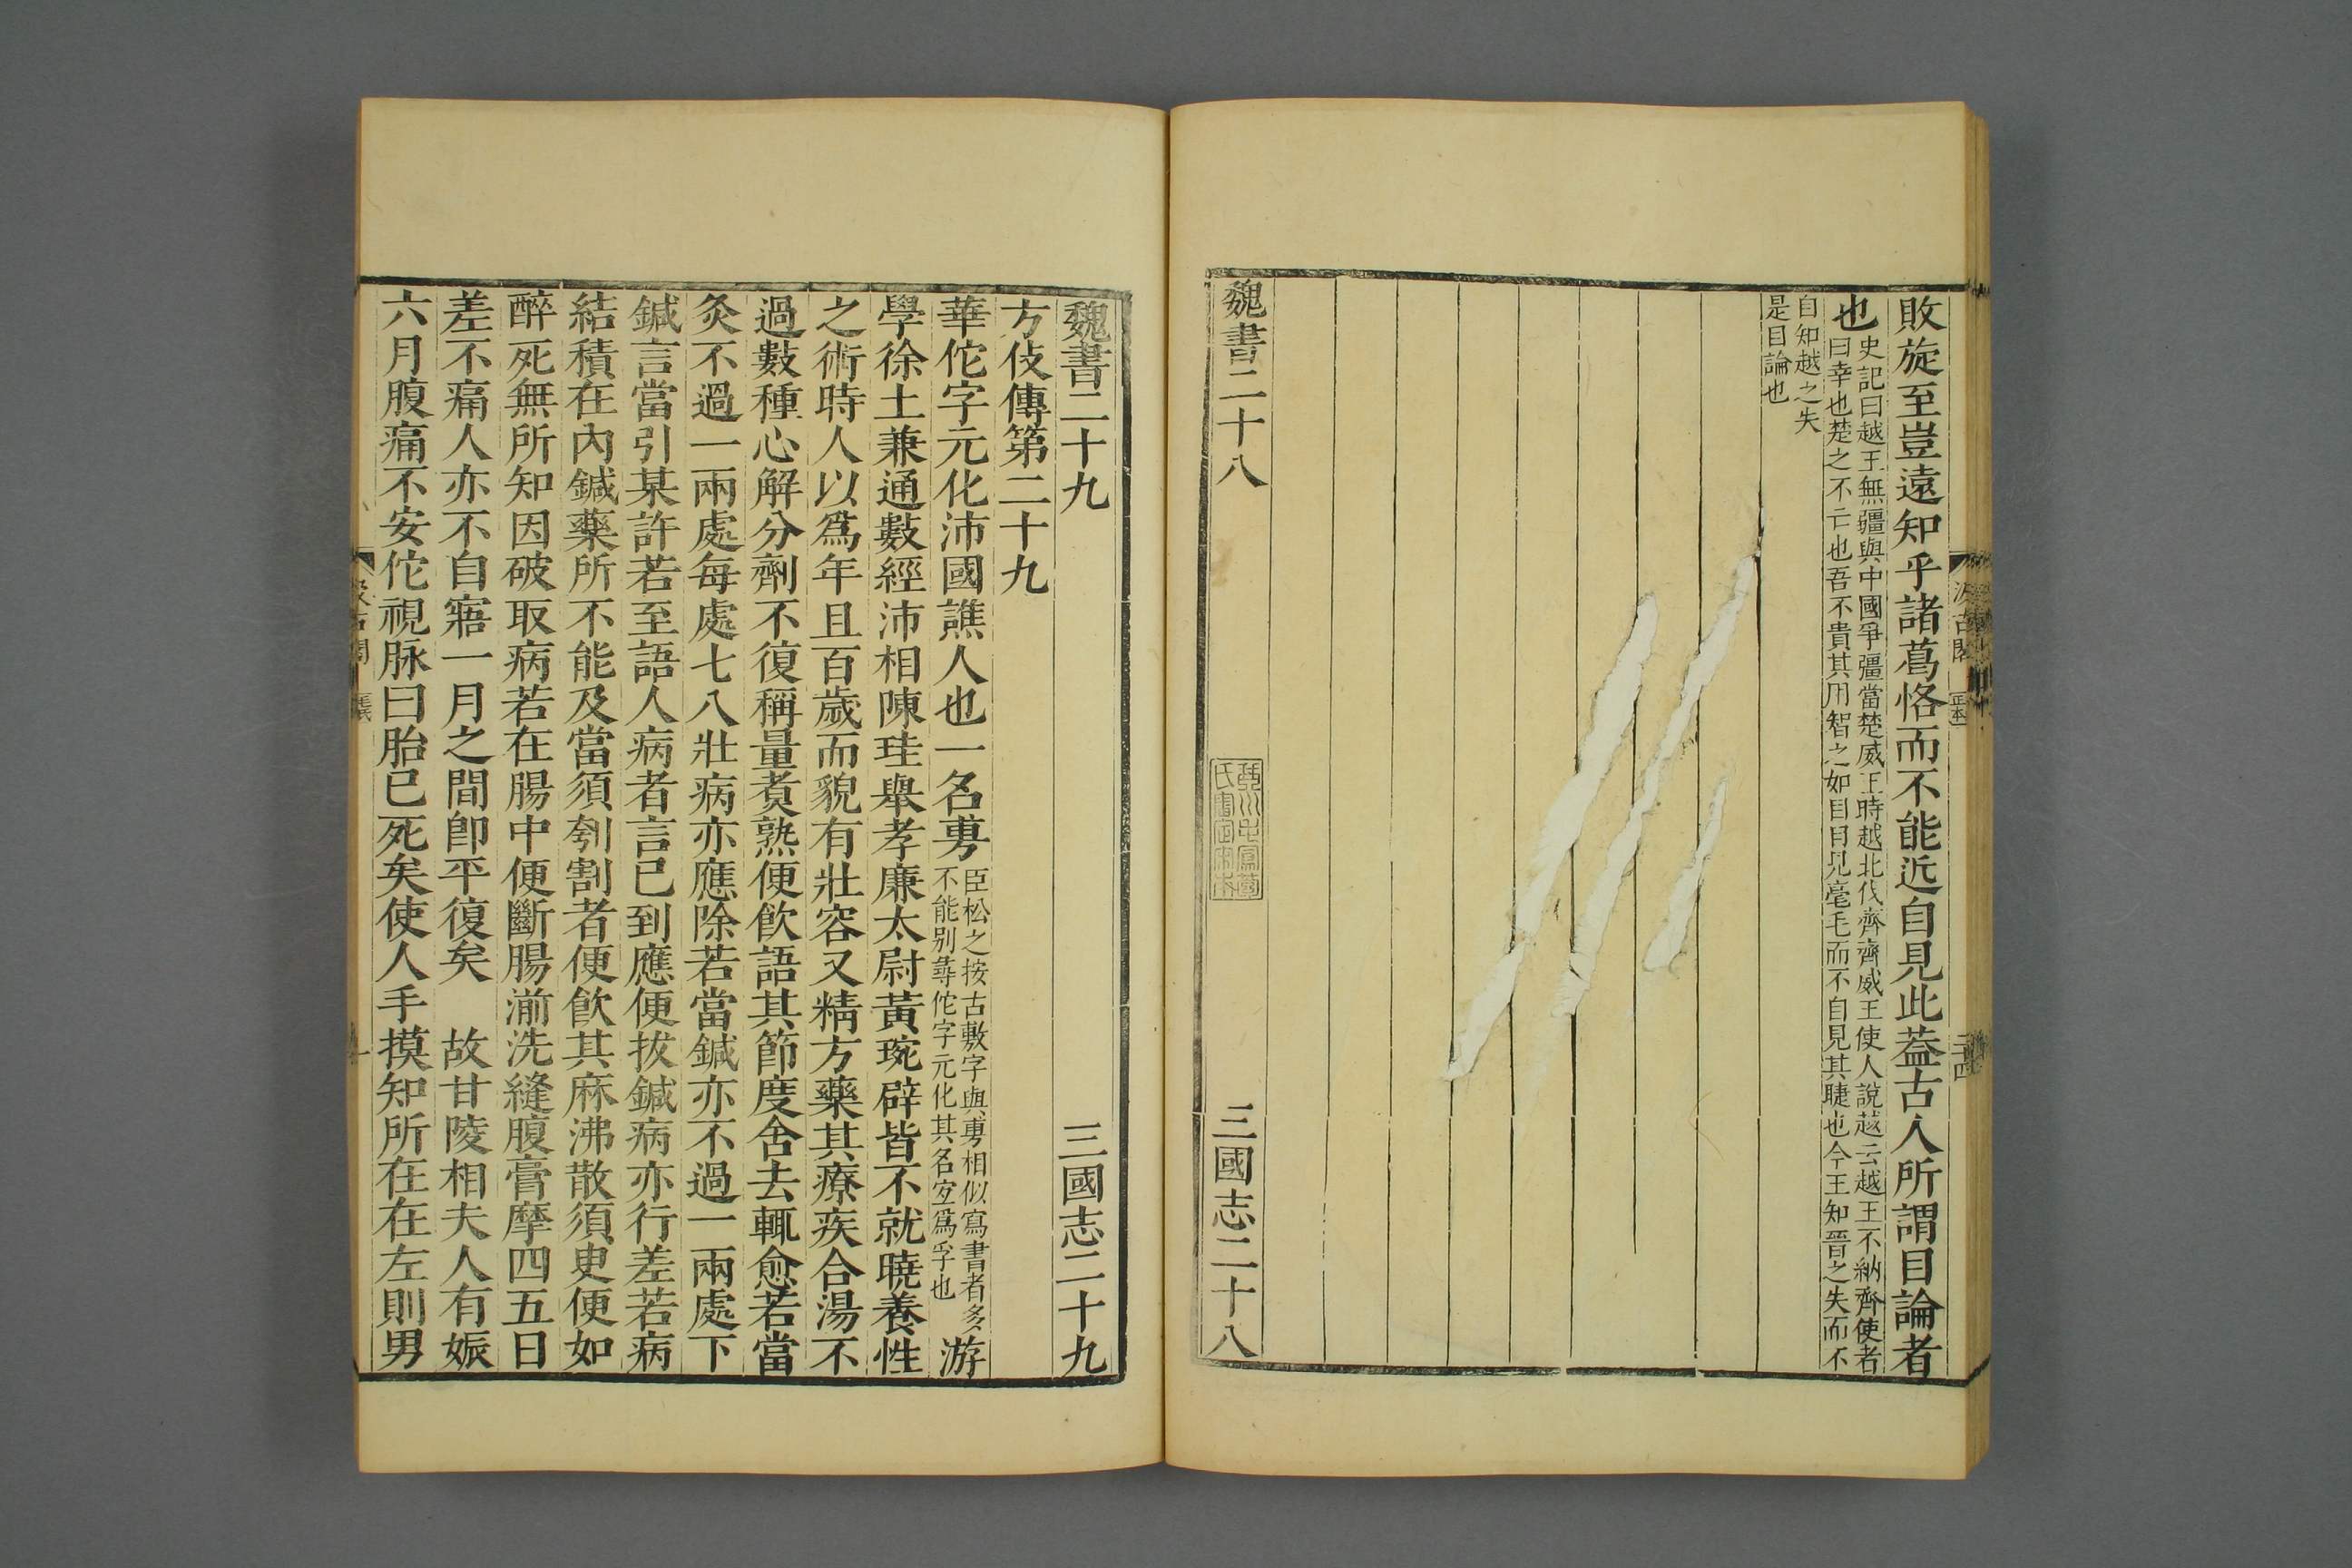 敗旋至豈遠知乎諸葛恪而不能近自見此葢古人所謂目論者
也
史記曰越王無疆與中國爭彊當楚威王時越北伐齊齊威王使人說越云越王不納齊使者
曰幸也楚之不亡也吾不貴其用智之如目目見毫毛而不自見其睫也今王知晉之失而不
自知越之失
是目論也
魏書二十八
三國志二十八
汲古閣
三十四
魏書二十九
三國志二十九
方伎傳第二十九
華佗字元化沛國譙人也一名旉
臣松之按古敷字與旉相似寫書者多
不能別尋佗字元化其名宜爲旉也
游
學徐土兼通數經沛相陳珪舉孝廉太尉黃琬辟皆不就曉養性
之術時人以爲年且百歲而貌有壯容又精方藥其療疾合湯不
過數種心解分劑不復稱量煑熟便飲語其節度舍去輒愈若當
灸不過一兩處每處七八壯病亦應除若當鍼亦不過一兩處下
鍼言當引某許若至語人病者言已到應便拔鍼病亦行差若病
結積在內鍼藥所不能及當須刳割者便飲其麻沸散須臾便如
醉死無所知因破取病若在腸中便斷腸湔洗縫腹膏摩四五日
差不痛人亦不自寤一月之間卽平復矣　故甘陵相夫人有娠
六月腹痛不安佗視脉曰胎已死矣使人手摸知所在在左則男